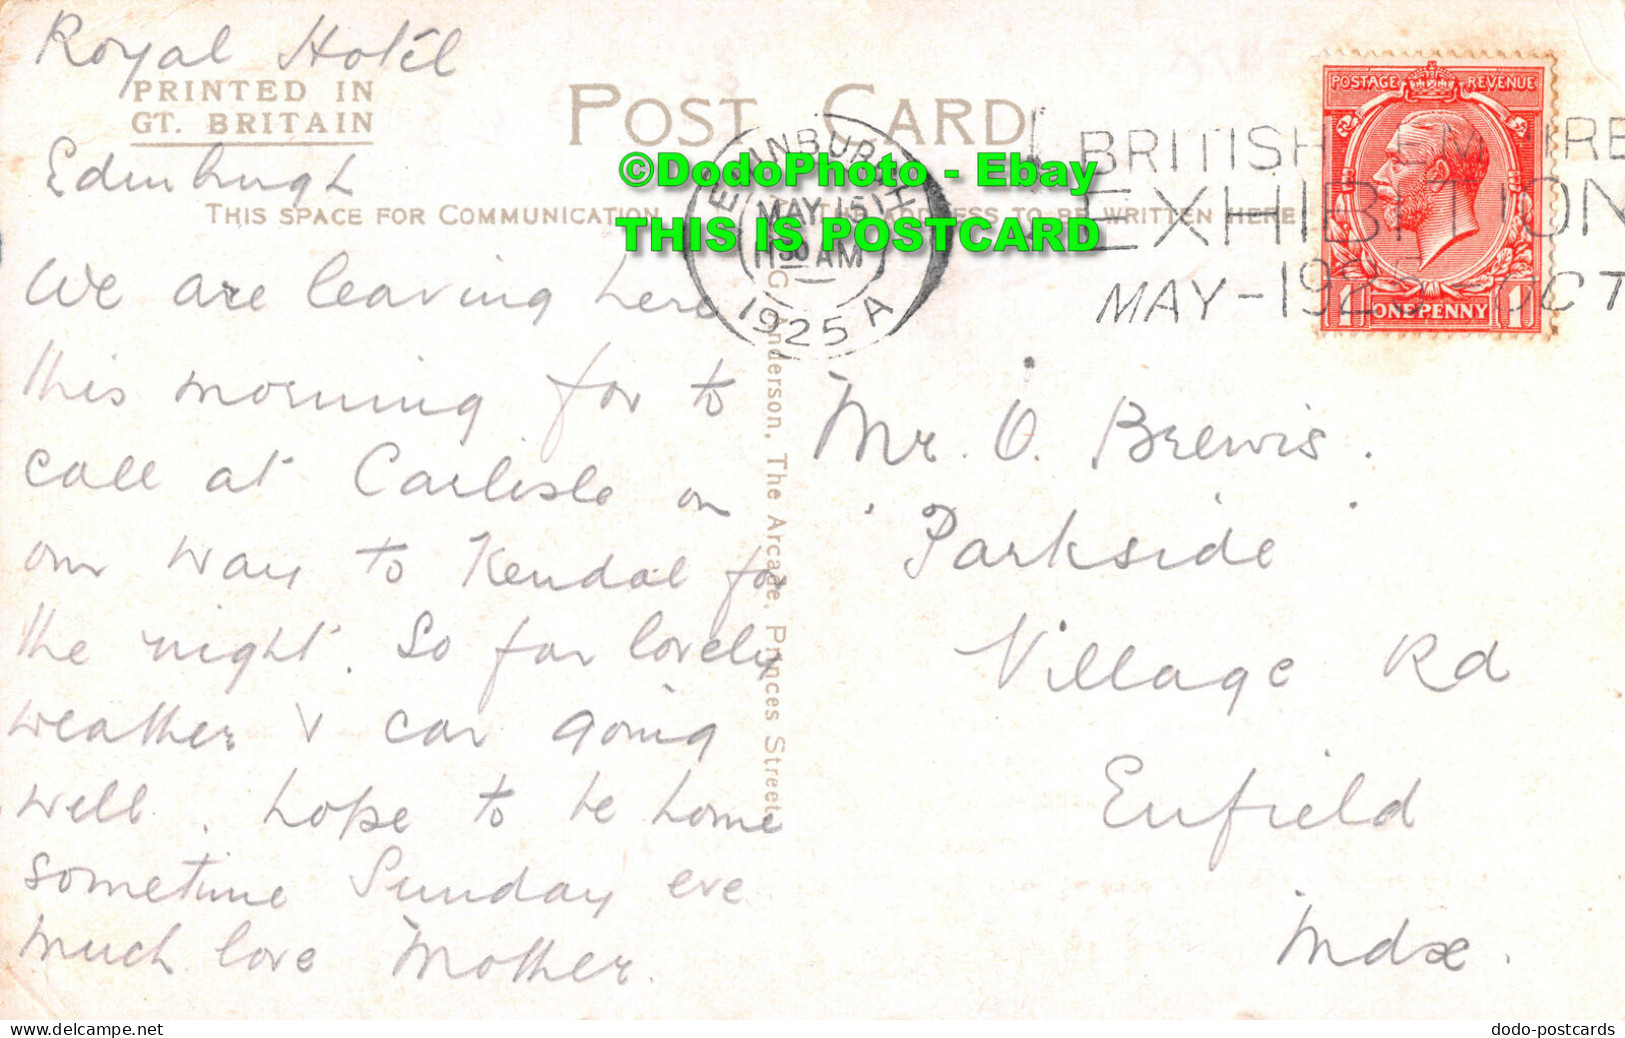 Royal Hotel
PRINTED IN
GT. BRITAIN
Edinburgh
POST CARD
THIS SPACE FOR COMMUNICATION
THE ADDRESS TO BE WRITTEN HERE
©DodoPhoto - Ebay
THIS IS POSTCARD
EDINBURGH
MAY 15
11 30 AM
1925 A
BRITISH EMPIRE
EXHIBITION
MAY - 1925 - OCT
POSTAGE REVENUE
1 ONE PENNY 1
We are leaving here
this morning for to
call at Carlisle on
our way to Kendal for
the night. So far lovely
weather & car going
well. hope to be home
sometime Sunday eve
much love Mother.
Anderson, The Arcade, Princes Street,
Mr. O. Brewis.
'Parkside'
Village Rd
Enfield
Mdx.
delcampe.net
dodo-postcards